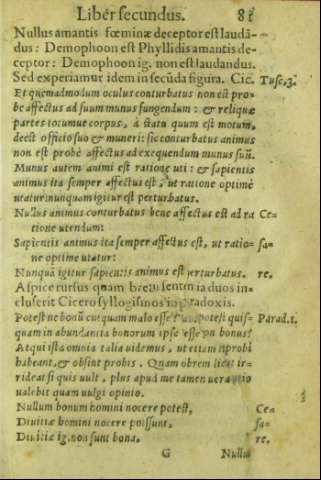 Liber secundus. 81
Nullus amantis fœminæ deceptor est laudã-
dus: Demophoon est Phyllidis amantis de-
ceptor: Demophoon ig. non est laudandus.
Sed experiamur idem in secũda figura. Cic. Tusc.3.
Et quemadmodum oculus conturbatus non est pro-
be affectus ad suum munus fungendum: & reliquæ
partes totumue corpus, à statu quum est motum,
deest officio suo & muneri: sic conturbatus animus
non est probè affectus ad exequendum munus suũ.
Munus autem animi est ratione uti: & sapientis
animus ita semper affectus est, ut ratione optimè
utatur: nunquam igitur est perturbatus.
Nullus animus conturbatus bene affectus est ad ra Ce-
tione utendum:
Sapientis animus ita semper affectus est, ut ratio- sa-
ne optime utatur:
Nunquã igitur sapientis animus est perturbatus. re.
Aspice rursus quam breui sententia duos in-
cluserit Cicero syllogismos in paradoxis.
Potest ne bonũ cuiquam malo esse? aut potest quis- Parad.1.
quam in abundantia bonorum ipse esse non bonus?
Atqui ista omnia talia uidemus, ut etiam improbi
habeant, & obsint probis. Quam obrem licet ir-
rideat si quis uult, plus apud me tamen uera ratio
ualebit quam uulgi opinio.
Nullum bonum homini nocere potest, Ce-
Diuitiæ homini nocere possunt, sa-
Diuitiæ ig. non sunt bona. re.
G Nullu